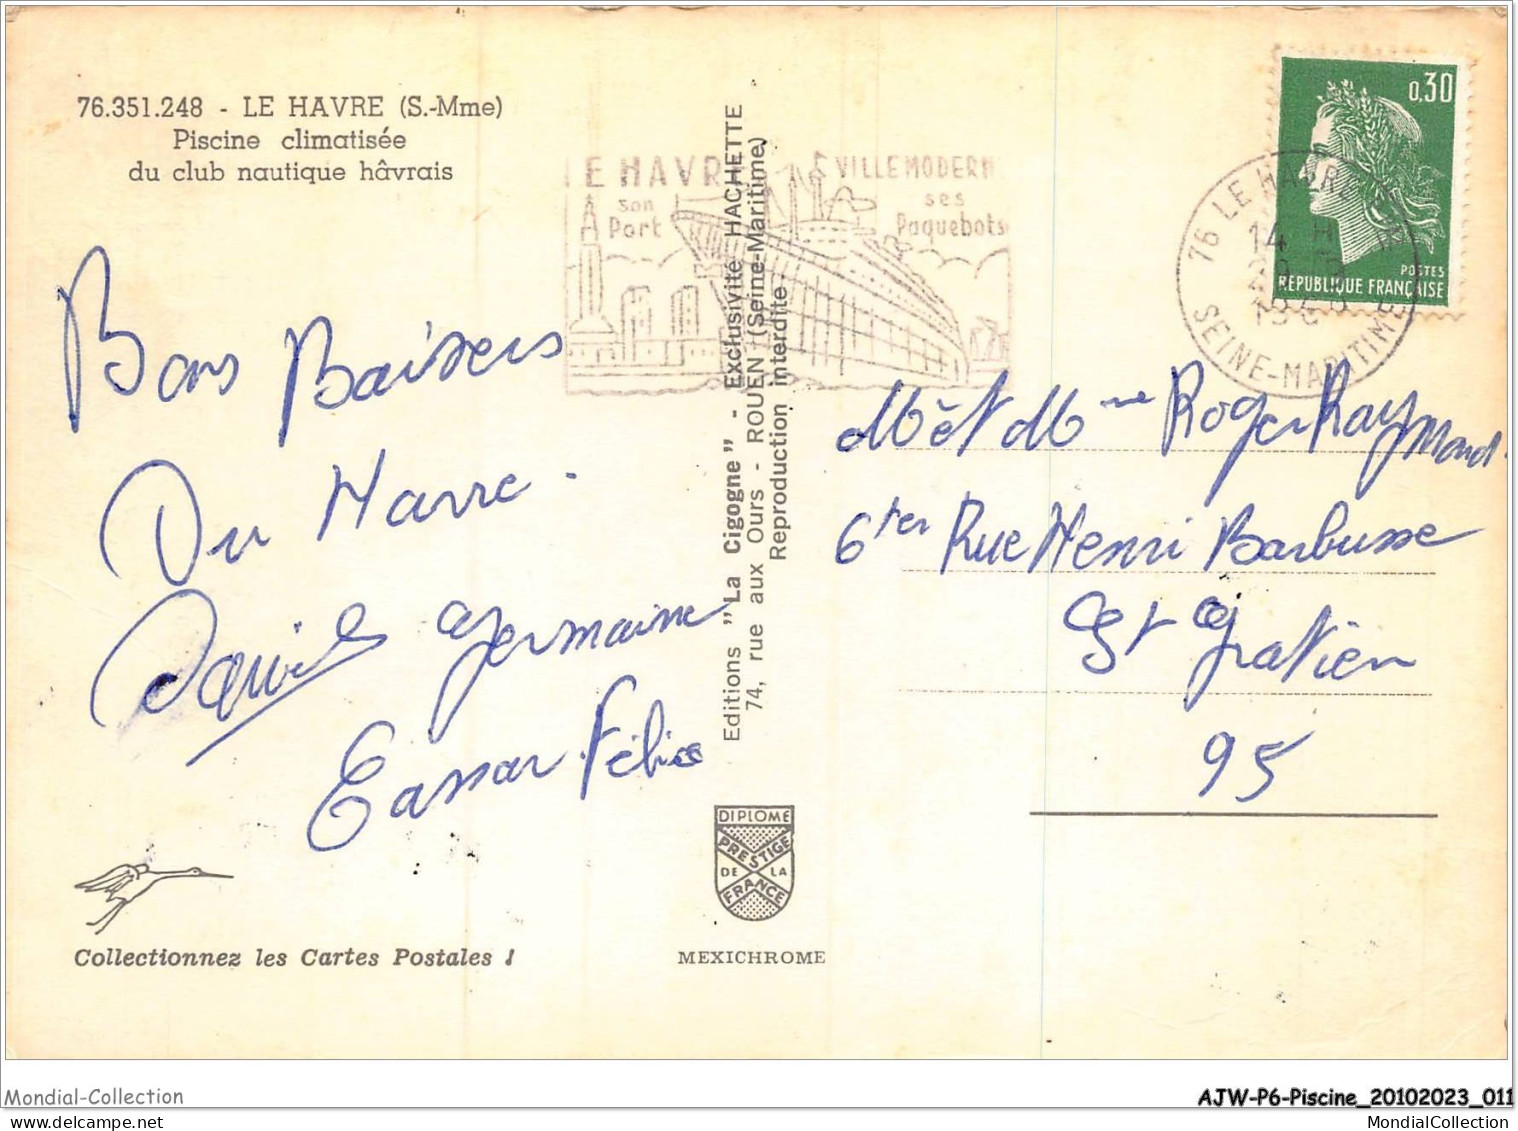 76.351.248 - LE HAVRE (S.-Mme)
Piscine climatisée
du club nautique hâvrais
Bons Baisers
Du Havre.
Germaine
Félix
Collectionnez les Cartes Postales !
Editions "La Cigogne" - Exclusivité HACHETTE
74, rue aux Ours - ROUEN (Seine-Maritime)
Reproduction interdite
DIPLOME
PRESTIGE
DE LA
FRANCE
MEXICHROME
LE HAVRE VILLE MODERNE
son ses
Port Paquebots
0,30
POSTES
REPUBLIQUE FRANÇAISE
76 LE HAVRE
14 H
SEINE-MARITIME
M et Mme Roger Raymond.
6 ter Rue Henri Barbusse
St Gratien
95
Mondial-Collection
AJW-P6-Piscine_20102023_011
www.delcampe.net
MondialCollection